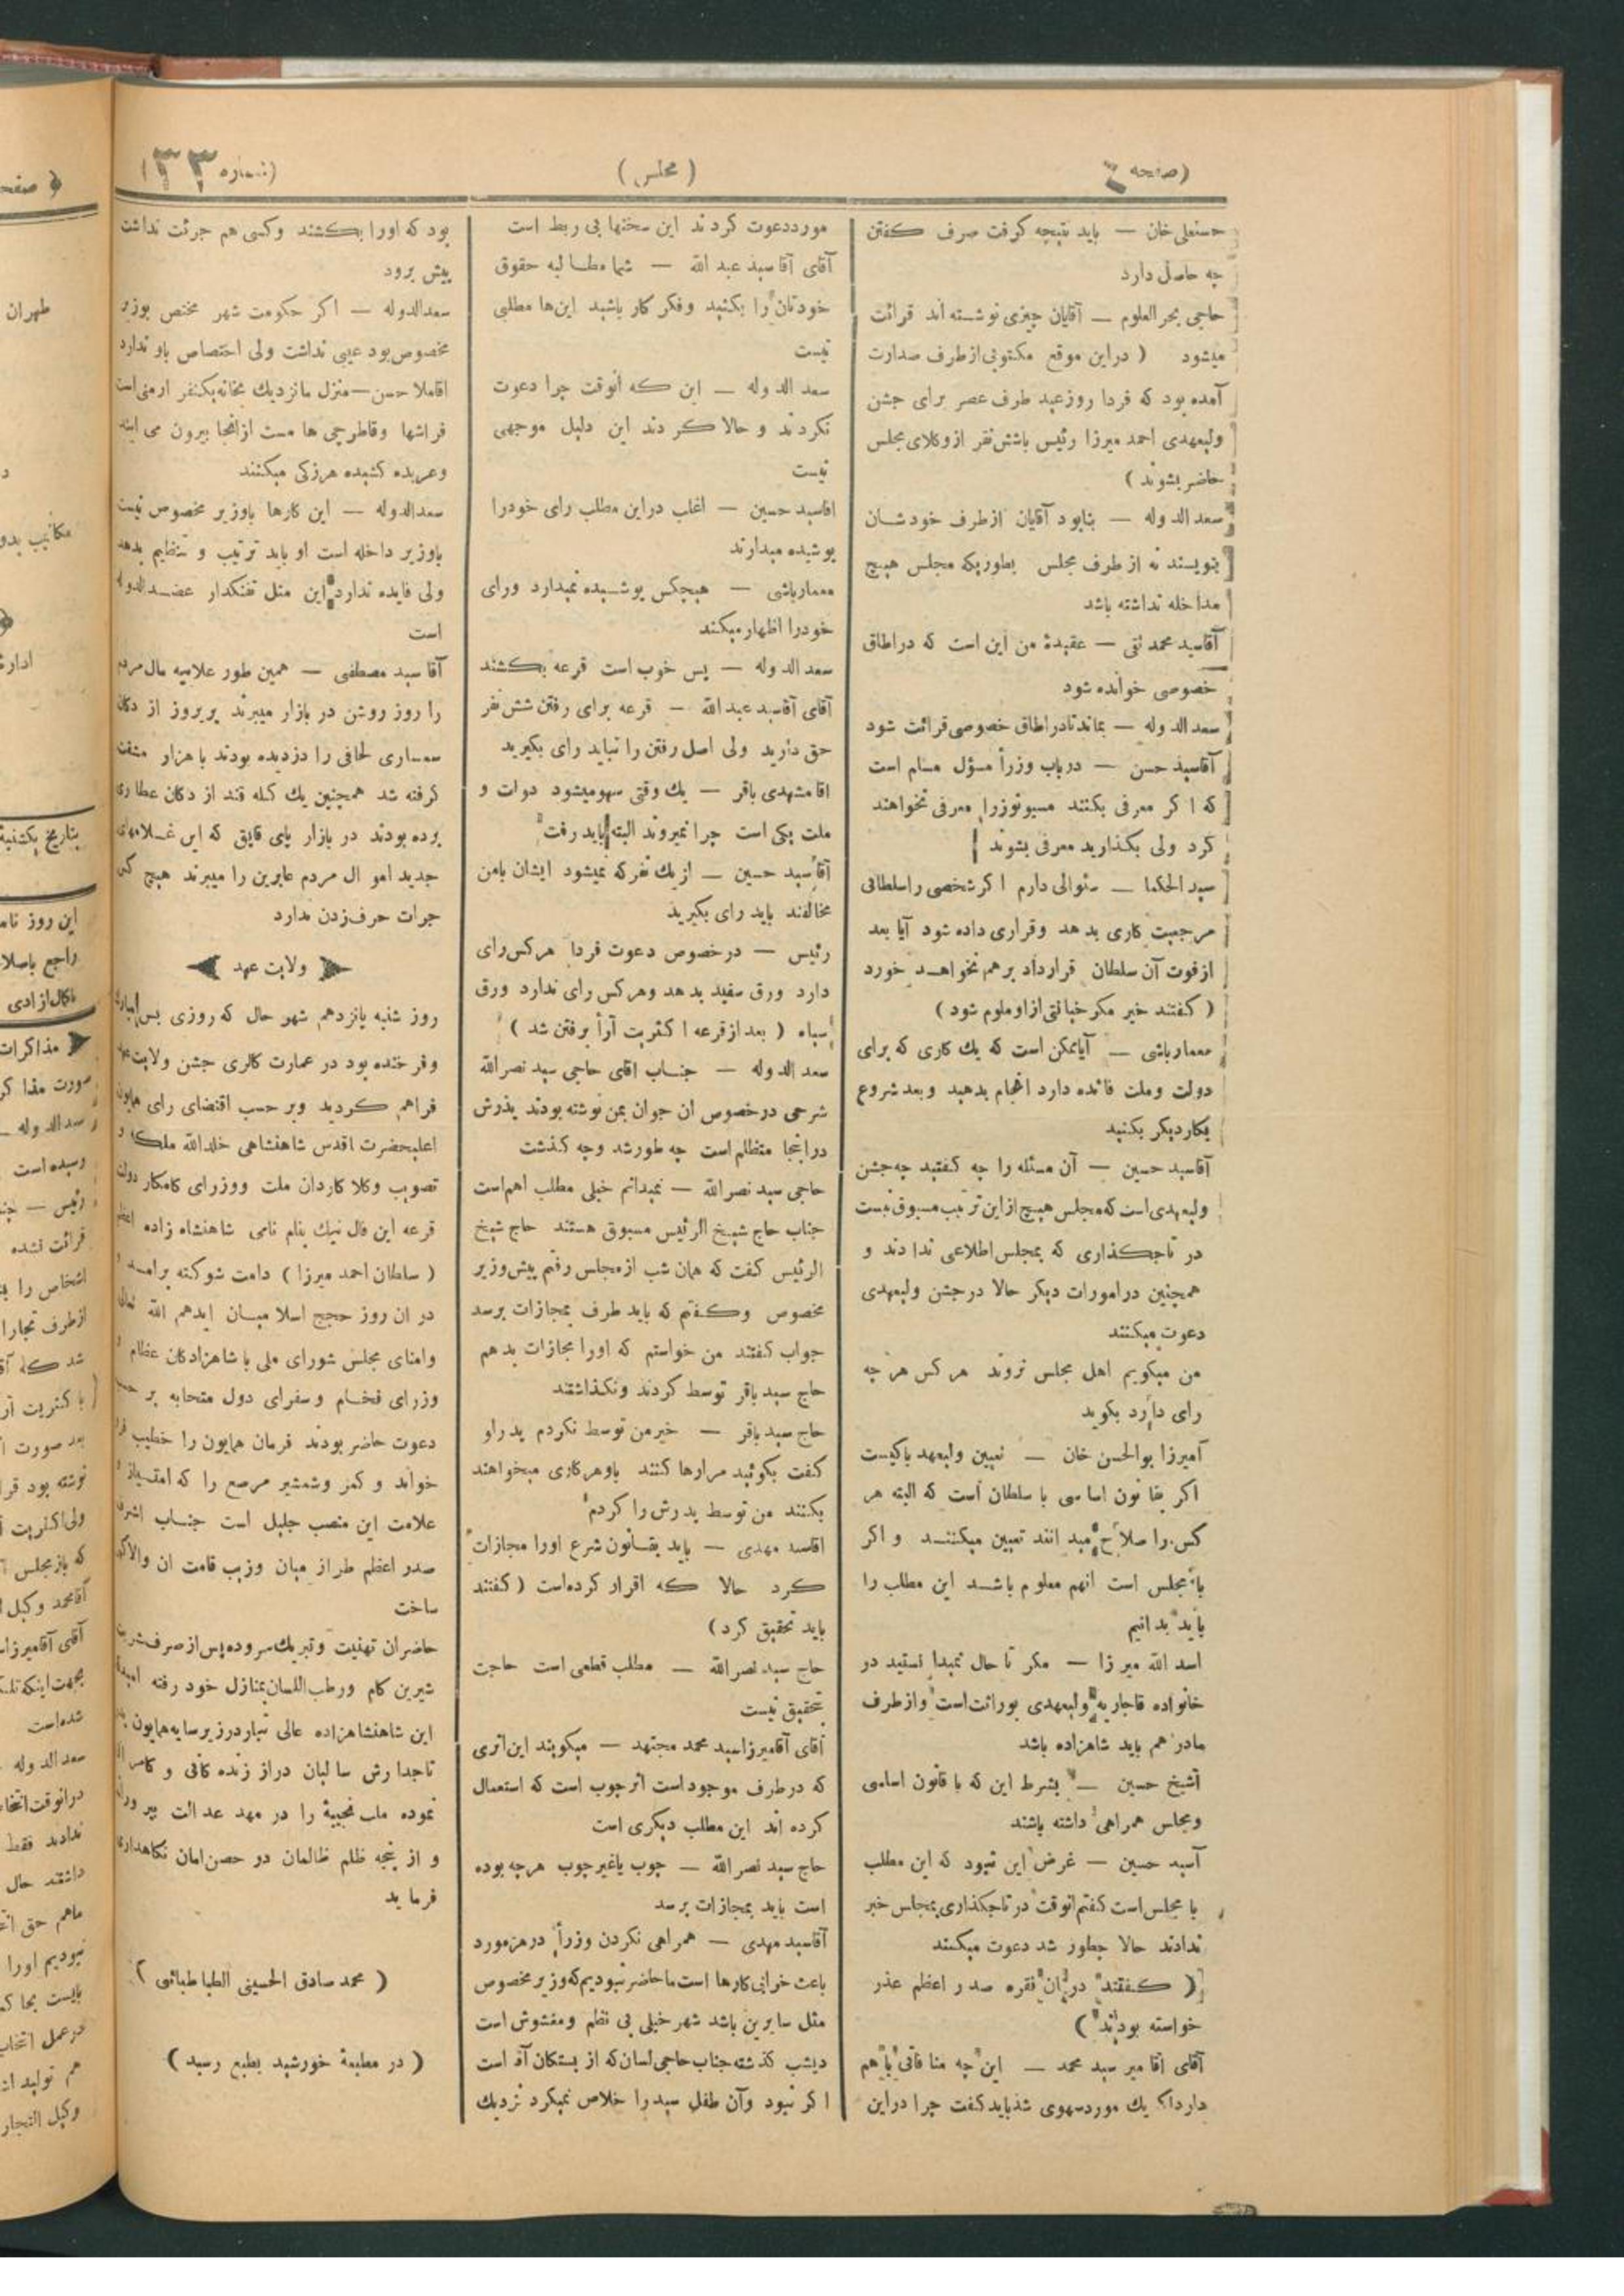 (صفحه ۴)
(مجلس)
(شماره ۳۳)
حسنعلی خان — باید نتیجه گرفت صرف گفتن
چه حاصل دارد
حاجی بحرالعلوم — آقایان چیزی نوشته اند قرائت
میشود ( در این موقع مکتوبی از طرف صدارت
آمده بود که فردا روز عید طرف عصر برای جشن
ولیعهدی احمد میرزا رئیس باشش نفر از وکلای مجلس
حاضر بشوند )
سعد الدوله — بنابود آقایان از طرف خودشان
بنویسند نه از طرف مجلس بطوریکه مجلس هیچ
مداخله نداشته باشد
آقاسید محمد تقی — عقیدۀ من این است که در اطاق
خصوصی خوانده شود
سعد الدوله — بماند تا در اطاق خصوصی قرائت شود
آقاسید حسن — در باب وزرأ مسؤل مسلم است
که اگر معرفی بکنند مسیو نوز را معرفی نخواهند
کرد ولی بگذارید معرفی بشوند
سید الحکما — سئوالی دارم اگر شخصی را سلطانی
مرجعیت کاری بدهد و قراری داده شود آیا بعد
از فوت آن سلطان قرارداد بر هم نخواهد خورد
( گفتند خیر مگر خیانتی از او ملوم شود )
معمارباشی — آیا ممکن است که یك کاری که برای
دولت وملت فائده دارد انجام بدهید و بعد شروع
بکار دیگر بکنید
آقاسید حسین — آن مسئله را چه گفتید چه جشن
ولیعهدی است که مجلس هیچ از این ترتیب مسبوق نیست
در تاجگذاری که بمجلس اطلاعی ندادند و
همچنین در امورات دیگر حالا در جشن ولیعهدی
دعوت میکنند
من میگویم اهل مجلس نروند هر کس هر چه
رای دارد بگوید
آمیرزا بوالحسن خان — تعیین ولیعهد باکیست
اگر بقانون اساسی با سلطان است که البته هر
کس را صلاح میدانند تعیین میکنند و اگر
با مجلس است آنهم معلوم باشد این مطلب را
باید بدانیم
اسد الله میرزا — مگر تا حال نمیدانستید در
خانواده قاجاریه ولیعهدی بوراثت است و از طرف
مادر هم باید شاهزاده باشد
آشیخ حسین — بشرط این که با قانون اساسی
ومجلس همراهی داشته باشند
آسید حسین — غرض این نبود که این مطلب
با مجلس است گفتم انوقت در تاجگذاری بمجلس خبر
ندادند حالا چطور شد دعوت میکنند
( گفتند در آن فقره صدر اعظم عذر
خواسته بودند )
آقای آقا میر سید محمد — این چه منافاتی با هم
دارد یك مورد سهوی شد باید گفت چرا در این
مورد دعوت کردند این سخنها بی ربط است
آقای آقا سید عبد الله — شما مطالبه حقوق
خودتان را بکنید وفکر کار باشید این ها مطلبی
نیست
سعد الدوله — این که آنوقت چرا دعوت
نکردند و حالا کردند این دلیل موجهی
نیست
اقاسید حسین — اغلب در این مطلب رای خود را
پوشیده میدارند
معمارباشی — هیچکس پوشیده نمیدارد و رای
خود را اظهار میکنند
سعد الدوله — پس خوب است قرعه بکشند
آقای آقاسید عبد الله — قرعه برای رفتن شش نفر
حق دارید ولی اصل رفتن را نباید رای بگیرید
اقا مشهدی باقر — یك وقتی سهو میشود دولت و
ملت یکی است چرا نمیروند البته باید رفت
آقا سید حسین — از یك نفر که نمیشود ایشان با من
مخالفند باید رای بگیرید
رئیس — در خصوص دعوت فردا هر کس رای
دارد ورق سفید بدهد وهر کس رای ندارد ورق
سیاه ( بعد از قرعه اکثریت آرأ برفتن شد )
سعد الدوله — جناب اقای حاجی سید نصر الله
شرحی در خصوص ان جوان بمن نوشته بودند پدرش
در اینجا متظلم است چه طور شد وچه گذشت
حاجی سید نصر الله — نمیدانم خیلی مطلب اهم است
جناب حاج شیخ الرئیس مسبوق هستند حاج شیخ
الرئیس گفت که همان شب از مجلس رفتم پیش وزیر
مخصوص وگفتم که باید طرف بمجازات برسد
جواب گفتند من خواستم که اورا مجازات بدهم
حاج سید باقر توسط کردند ونگذاشتند
حاج سید باقر — خیر من توسط نکردم پدر او
گفت بگوئید مرا رها کنند باو هر کاری میخواهند
بکنند من توسط پدرش را کردم
اقاسید مهدی — باید بقانون شرع اورا مجازات
کرد حالا که اقرار کرده است ( گفتند
باید تحقیق کرد )
حاج سید نصر الله — مطلب قطعی است حاجت
تحقیق نیست
آقای آقامیرزا سید محمد مجتهد — میگویند این اثری
که در طرف موجود است اثر چوب است که استعمال
کرده اند این مطلب دیگری است
حاج سید نصر الله — چوب یا غیر چوب هر چه بوده
است باید بمجازات برسد
آقاسید مهدی — همراهی نکردن وزرأ در هر مورد
باعث خرابی کارها است ما حاضر نبودیم که وزیر مخصوص
مثل سایرین باشد شهر خیلی بی نظم و مغشوش است
دیشب گذشته جناب حاجی لسان که از بستگان آقا است
اگر نبود وآن طفل سید را خلاص نمیکرد نزدیك
بود که اورا بکشند وکسی هم جرئت نداشت
پیش برود
سعد الدوله — اگر حکومت شهر مختص بوزیر
مخصوص بود عیبی نداشت ولی اختصاص باو ندارد
اقا ملا حسن — منزل ما نزدیك بخانه یکنفر ارمنی است
فراشها وقاطرچی ها مست از انجا بیرون می ایند
وعربده کشیده هرزگی میکنند
سعد الدوله — این کارها باوزیر مخصوص نیست
باوزیر داخله است او باید ترتیب و تنظیم بدهد
ولی فایده ندارد این مثل تفنگدار عضد الدوله
است
آقا سید مصطفی — همین طور علانیه مال مردم
را روز روشن در بازار میبرند پریروز از دکان
سمساری لحافی را دزدیده بودند با هزار مشقت
گرفته شد همچنین یك کله قند از دکان عطاری
برده بودند در بازار پای قاپق که این غلامهای
جدید اموال مردم عابرین را میبرند هیچ کس
جرات حرف زدن ندارد
ولایت عهد
روز شنبه پانزدهم شهر حال که روزی بس
وفرخنده بود در عمارت گالری جشن ولایت عهد
فراهم گردید وبر حسب اقتضای رای همایون
اعلیحضرت اقدس شاهنشاهی خلد الله ملکه و
تصویب وکلا کاردان ملت ووزرای کامکار دولت
قرعه این فال نیك بنام نامی شاهنشاه زاده اعظم
( سلطان احمد میرزا ) دامت شوکته برامد و
در ان روز حجج اسلامیان ایدهم الله تعالی
وامنای مجلس شورای ملی با شاهزادگان عظام و
وزرای فخام و سفرای دول متحابه بر حسب
دعوت حاضر بودند فرمان همایون را خطیب
خواند و کمر وشمشیر مرصع را که امتیاز و
علامت این منصب جلیل است جناب اشرف
صدر اعظم طراز میان وزیب قامت ان
ساخت
حاضران تهنیت وتبریك سروده پس از صرف شربت
شیرین کام ورطب اللسان بمنازل خود رفته
این شاهنشاهزاده عالی تبار در زیر سایه همایون
تاجدارش سالیان دراز زنده گانی و
نموده ملت نجیبۀ را در مهد عدالت
و از پنجه ظلم ظالمان در حصن امان نگاهداری
فرماید
( محمد صادق الحسینی الطباطبائی )
( در مطبعۀ خورشید بطبع رسید )